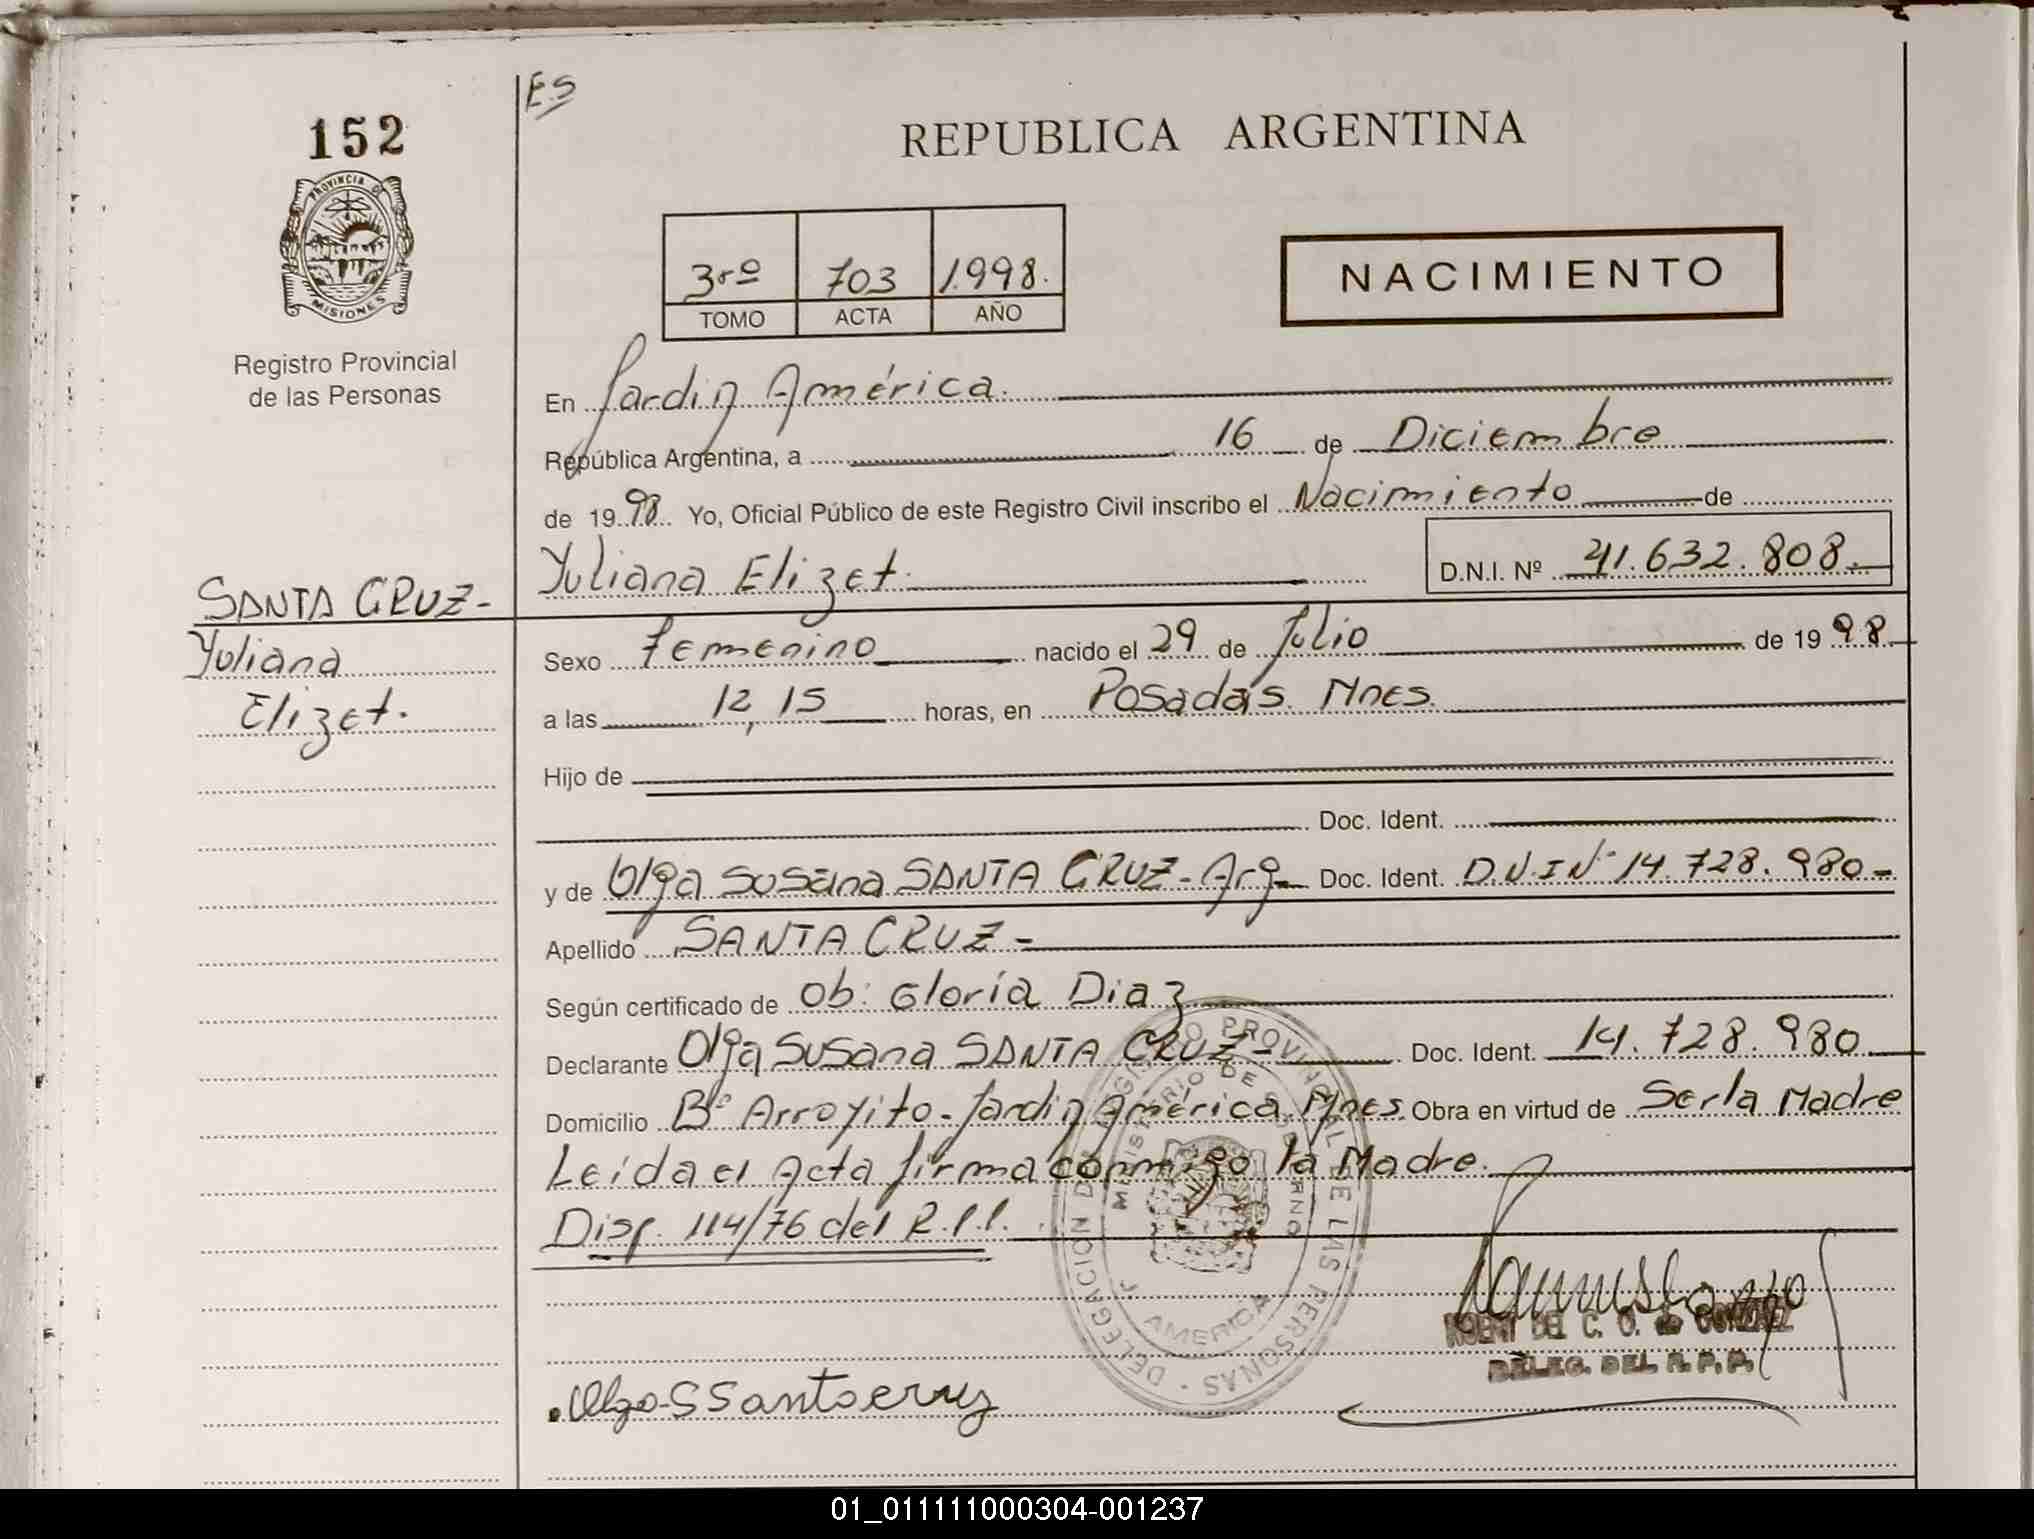 ES
152
PROVINCIA DE
MISIONES
Registro Provincial
de las Personas
REPUBLICA ARGENTINA
3ro 703 1.998.
TOMO ACTA AÑO
NACIMIENTO
En Jardin América.
República Argentina, a 16 de Diciembre
de 1998 Yo, Oficial Público de este Registro Civil inscribo el Nacimiento de
Yuliana Elizet. D.N.I. Nº 41.632.808.-
SANTA CRUZ-
Yuliana
Elizet.
Sexo Femenino nacido el 29 de Julio de 1998
a las 12,15 horas, en Posadas. Mnes.
Hijo de
Doc. Ident.
y de Olga Susana SANTA CRUZ-Arg- Doc. Ident. D.N.I Nº 14.728.980-
Apellido SANTA CRUZ-
Según certificado de Ob: Gloria Diaz
Declarante Olga Susana SANTA CRUZ- Doc. Ident. 14.728.980
Domicilio Bº Arroyito-Jardin América. Mnes. Obra en virtud de Serla Madre
Leída el Acta firma conmigo la Madre.
Disp. 114/76 del R.P.P.
DELEGACION DEL REGISTRO PROVINCIAL DE LAS PERSONAS
MINISTERIO DE GOBIERNO
J. AMERICA
NOEMI DEL C. O. de GONZALEZ
DELEG. DEL R.P.P.
Olga S Santacruz
01_011111000304-001237